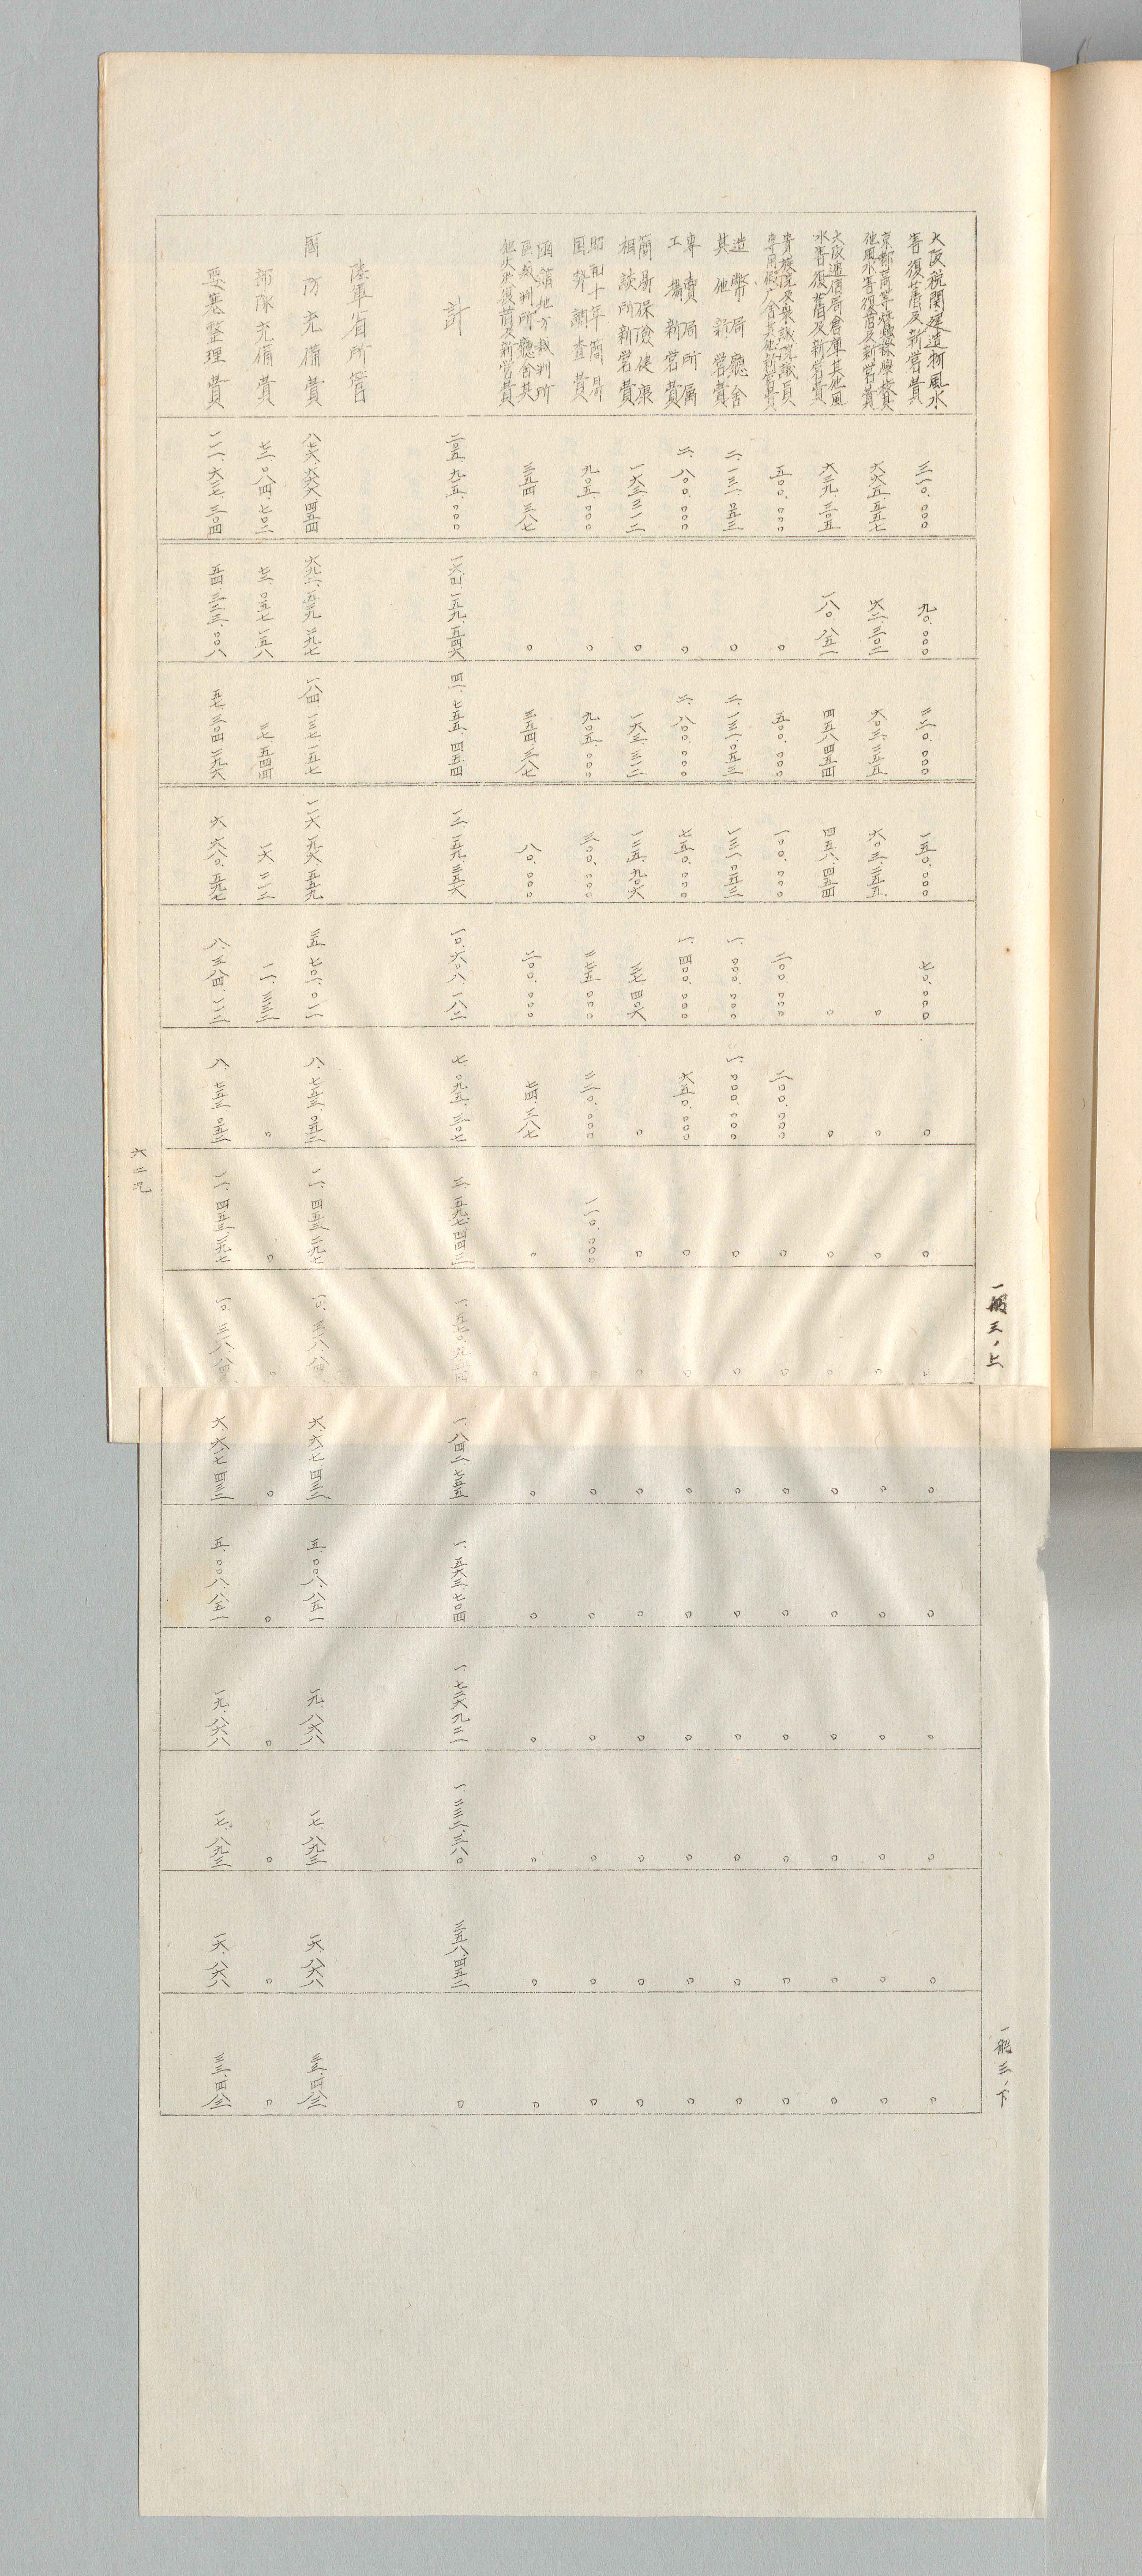 一般三ノ上
大阪税関建造物風水
害復舊及新營費
三一〇,〇〇〇
九〇,〇〇〇
二二〇,〇〇〇
一五〇,〇〇〇
七〇,〇〇〇
〇
〇
〇
〇
〇
〇
〇
〇
〇
京都高等蠶絲學校其
他風水害復舊及新營費
六六五,五五七
六二,三〇二
六〇三,二五五
六〇三,二五五
〇
〇
〇
〇
〇
〇
〇
〇
〇
〇
大阪逓信局倉庫其他風
水害復舊及新營費
六三九,三〇五
一八〇,八五一
四五八,四五四
四五八,四五四
〇
〇
〇
〇
〇
〇
〇
〇
〇
〇
貴族院及衆議院議員
専用廳舎其他新營費
五〇〇,〇〇〇
〇
五〇〇,〇〇〇
一〇〇,〇〇〇
二〇〇,〇〇〇
二〇〇,〇〇〇
〇
〇
〇
〇
〇
〇
〇
〇
造幣局廳舎
其他新營費
二,一三一,〇五三
〇
二,一三一,〇五三
一三一,〇五三
一,〇〇〇,〇〇〇
一,〇〇〇,〇〇〇
〇
〇
〇
〇
〇
〇
〇
〇
専賣局所属
工場新營費
二,八〇〇,〇〇〇
〇
二,八〇〇,〇〇〇
七五〇,〇〇〇
一,四〇〇,〇〇〇
六五〇,〇〇〇
〇
〇
〇
〇
〇
〇
〇
〇
簡易保險健康
相談所新營費
一六三,三一二
〇
一六三,三一二
一二五,九〇六
三七,四〇六
〇
〇
〇
〇
〇
〇
〇
〇
〇
昭和十年簡易
国勢調査費
九〇五,〇〇〇
〇
九〇五,〇〇〇
三〇〇,〇〇〇
二七五,〇〇〇
二二〇,〇〇〇
一一〇,〇〇〇
〇
〇
〇
〇
〇
〇
〇
函館地方裁判所
區裁判所廳舎其
他火災復舊及新營費
三五四,三八七
〇
三五四,三八七
八〇,〇〇〇
二〇〇,〇〇〇
七四,三八七
〇
〇
〇
〇
〇
〇
〇
〇
計
二〇五,九一五,〇〇〇
一六四,一五九,五四六
四一,七五五,四五四
一二,一五九,三五六
一〇,六〇八,一八二
七,〇九五,三〇七
三,五九七,四四三
一,五七〇,九一四
一,八四二,七五五
一,五六三,七〇四
一,七二六,九二一
一,二三二,三八〇
三五八,四五二
〇
陸軍省所管
國防充備費
八七六,六六六,四五四
六九二,五二九,二九七
一八四,一三七,一五七
一二六,九六六,五五九
三五,七〇一,〇一一
八,七五三,〇五二
一一,四五三,二九七
六,六七一,四三二
五,〇〇八,八五一
一九,八六八
一七,八九三
一六,八六八
三三,四八三
部隊充備費
七三,〇八四,七〇二
七三,〇四七,一五八
三七,五四四
一六,二一二
一一,三三二
〇
〇
〇
〇
〇
〇
〇
〇
〇
要塞整理費
一一一,六二七,三〇四
五四,三二三,〇〇八
五七,三〇四,二九六
六,六八〇,五九七
八,三八四,一一二
八,七五三,〇五二
一一,四五三,二九七
六,六七一,四三二
五,〇〇八,八五一
一九,八六八
一七,八九三
一六,八六八
三三,四八三
六二九
一般三ノ下